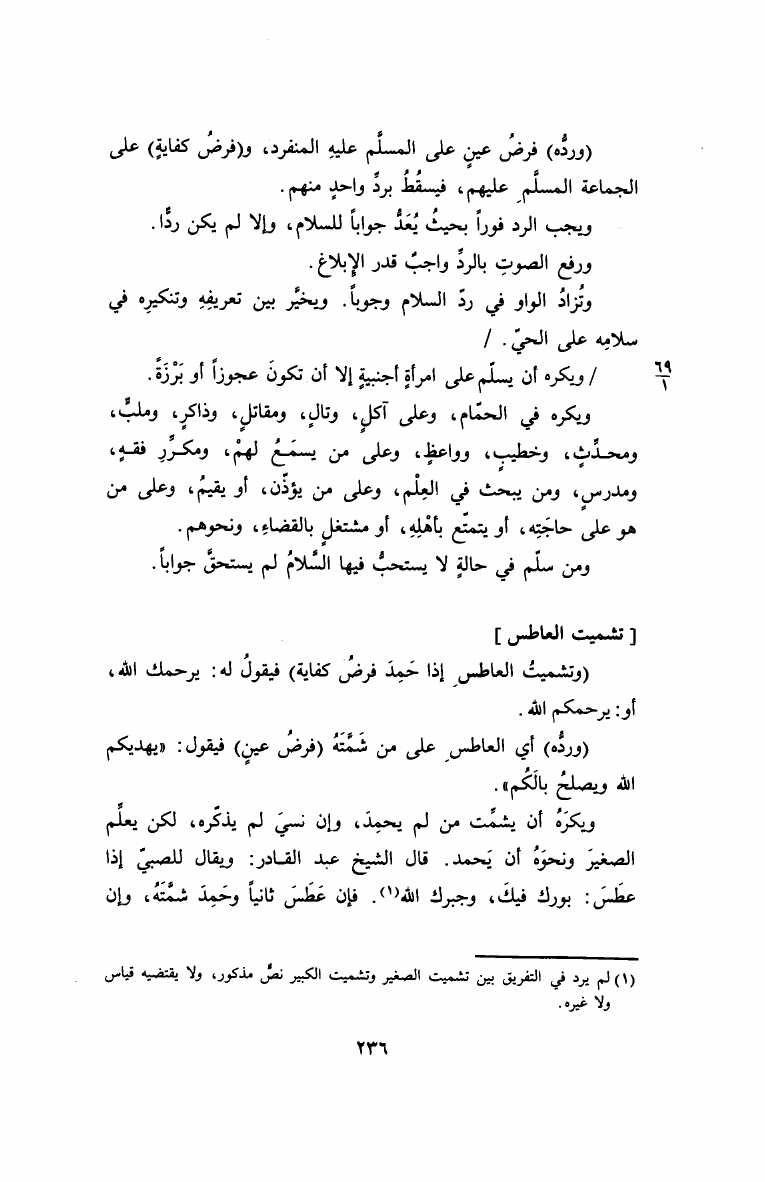 (وردُّه) فرضُ عينٍ على المسلَّم عليهِ المنفرد، و(فرضُ كفايةٍ) على
الجماعة المسلَّمِ عليهم، فيسقُطُ بردِّ واحدٍ منهم.
ويجب الرد فوراً بحيثُ يُعَدُّ جواباً للسلام، وإلا لم يكن ردًّا.
ورفع الصوتِ بالردِّ واجبٌ قدر الإبلاغ.
وتُزادُ الواو في ردّ السلام وجوباً. ويخيَّر بين تعريفِهِ وتنكيرِه في
سلامِه على الحيّ. /
٦٩
١
/ ويكره أن يسلّم على امرأةٍ أجنبيةٍ إلا أن تكونَ عجوزاً أو بَرْزَةً.
ويكره في الحمّام، وعلى آكلٍ، وتالٍ، ومقاتلٍ، وذاكرٍ، وملبٍّ،
ومحدِّثٍ، وخطيبٍ، وواعظٍ، وعلى من يسمَعُ لهمْ، ومكرِّرِ فقهٍ،
ومدرسٍ، ومن يبحث في العِلْم، وعلى من يؤذّن، أو يقيمُ، وعلى من
هو على حاجَتِه، أو يتمتّع بأهْلِهِ، أو مشتغلٍ بالقضاءِ، ونحوهم.
ومن سلّم في حالةٍ لا يستحبُّ فيها السَّلامُ لم يستحقَّ جواباً.
[ تشميت العاطس ]
(وتشميتُ العاطسِ إذا حَمِدَ فرضُ كفاية) فيقولُ له: يرحمك الله،
أو: يرحمكم الله.
(وردُّه) أي العاطسِ على من شَمَّتَهُ (فرضُ عينٍ) فيقول: «يهديكم
الله ويصلحُ بالَكُم».
ويكرَهُ أن يشمَّت من لم يحمِدَ، وإن نسيَ لم يذكّره، لكن يعلَّم
الصغيرَ ونحوَهُ أن يَحمد. قال الشيخ عبد القادر: ويقال للصبيّ إذا
عطَسَ: بورك فيكَ، وجبرك الله(١). فإن عَطَسَ ثانياً وحَمِدَ شمَّتَهُ، وإن
(١) لم يرد في التفريق بين تشميت الصغير وتشميت الكبير نصٌّ مذكور، ولا يقتضيه قياس
ولا غيره.
٢٣٦